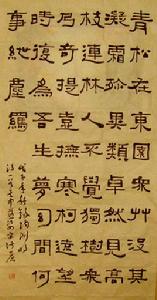 青松在東園衆草沒其
凝霜殄異類卓然見高
枝連林人不覺獨樹衆
乃奇提壺撫寒柯遠望
時復為吾生夢幻間何
事紲塵羈